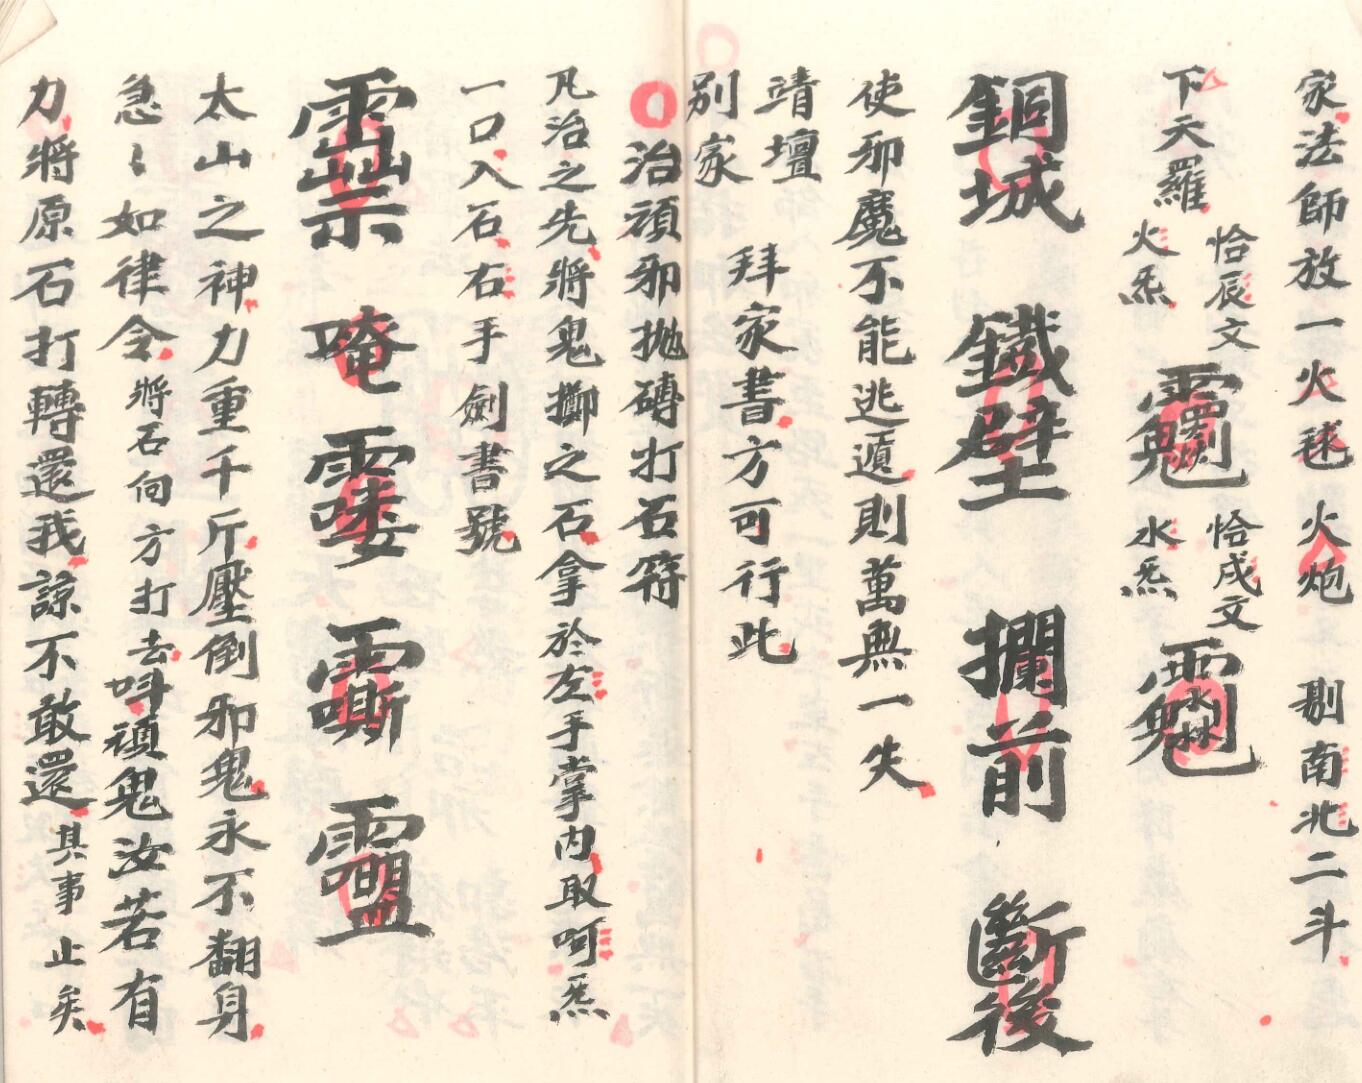 家法師放一火毬火炮 剔南北二斗
下天羅 火炁 恰辰文 水炁 恰戌文
銅城 鐵壁 攔前 斷後
使邪魔不能逃遁則萬無一失
靖壇 拜家書方可行此
別家
治頑邪拋磚打石符
凡治之先將鬼擲之石拿於左手掌內取呵炁
一口入石右手劍書號
唵
太山之神力重千斤壓倒邪鬼永不翻身
急〻如律令將石向方打去叫頑鬼汝若有
力將原石打轉還我諒不敢還其事止矣